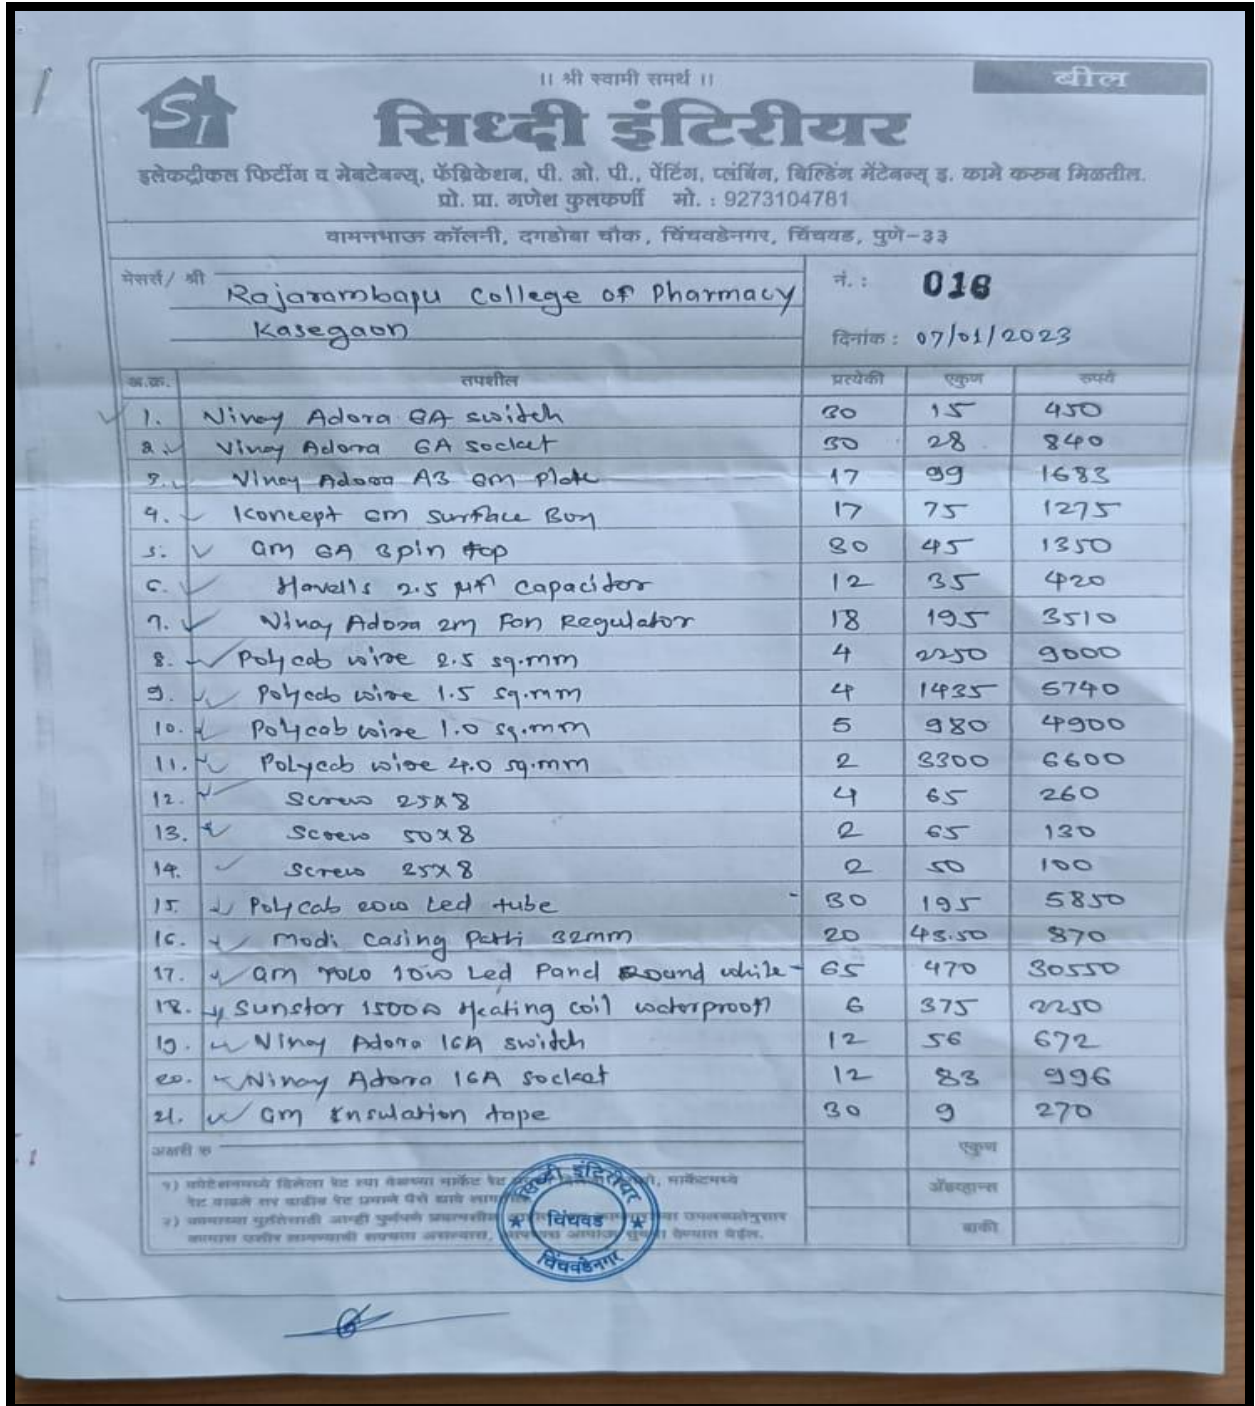 ।। श्री स्वामी समर्थ ।।
बील
SI
सिध्दी इंटिरीयर
इलेकट्रीकल फिटींग व मेनटेनन्स्, फॅब्रिकेशन, पी. ओ. पी., पेंटिंग, प्लंबिंग, बिल्डिंग मेंटेनन्स् इ. कामे करुन मिळतील.
प्रो. प्रा. गणेश कुलकर्णी मो. : 9273104781
वामनभाऊ कॉलनी, दगडोबा चौक, चिंचवडेनगर, चिंचवड, पुणे-३३
मेसर्स/ श्री Rajarambapu College of Pharmacy
Kasegaon
नं. : 016
दिनांक : 07/01/2023
अ.क्र. तपशील प्रत्येकी एकुण रुपये
1. Vinay Adora 6A switch 30 15 450
2. Vinay Adora 6A socket 30 28 840
3. Vinay Adora A3 6m Plate 17 99 1683
4. Koncept 6m Surface Box 17 75 1275
5. Gm 6A 3pin top 30 45 1350
6. Havells 2.5 µf Capacitor 12 35 420
7. Vinay Adora 2m Fan Regulator 18 195 3510
8. Polycab wire 2.5 sq.mm 4 2250 9000
9. Polycab wire 1.5 sq.mm 4 1435 5740
10. Polycab wire 1.0 sq.mm 5 980 4900
11. Polycab wire 4.0 sq.mm 2 3300 6600
12. Screw 25x8 4 65 260
13. Screw 50x8 2 65 130
14. Screw 25x8 2 50 100
15. Polycab 20w Led tube 30 195 5850
16. Modi Casing Patti 32mm 20 43.50 870
17. Gm 10w Led Panel Round white 65 470 30550
18. Sunstar 1500w Heating coil waterproof 6 375 2250
19. Vinay Adora 16A switch 12 56 672
20. Vinay Adora 16A socket 12 83 996
21. Gm Insulation tape 30 9 270
अक्षरी रु एकुण
१) कोटेशनमध्ये दिलेला रेट त्या वेळच्या मार्केट रेट मार्केटमध्ये
रेट वाढले तर वाढीव रेट प्रमाणे पैसे द्यावे
अ‍ॅडव्हान्स
२) कामाच्या पुर्ततेसाठी आम्ही पुर्णपणे उपलब्धतेनुसार
कामास उशीर लागण्याची शक्यता असल्यास, देण्यात येईल.
बाकी
सिध्दी इंटिरीयर
चिंचवड
चिंचवडेनगर